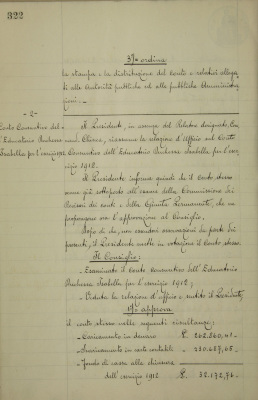 322
37° ordina
la stampa e la distribuzione del Conto e relativi allega-
ti alle Autorità pubbliche ed alle pubbliche Amministra-
zioni.
- 2 -
Conto Consuntivo del-
l'Educatorio Duchessa
Isabella per l'esercizio 1912
Il Presidente, in assenza del Relatore designato,
riassume la relazione d'Ufficio sul Conto
Consuntivo dell'Educatorio Duchessa Isabella per l'eser-
cizio 1912.
Il Presidente informa quindi che il Conto stesso
venne già sottoposto all'esame della Commissione dei
Revisori dei conti e della Giunta Permanente, che ne
propongono ora l'approvazione al Consiglio.
Dopo di che, non essendovi osservazioni da parte dei
presenti, il Presidente mette in votazione il Conto stesso.
Il Consiglio;
- Esaminato il Conto Consuntivo dell'Educatorio
Duchessa Isabella per l'esercizio 1912;
- Veduta la relazione d'ufficio e sentito il Presidente,
approva
il conto stesso nelle seguenti risultanze:
- Caricamento in denaro L.
- Scaricamento in carte contabili "
- Fondo di cassa alla chiusura
dell'esercizio 1912 L. 32.172,76